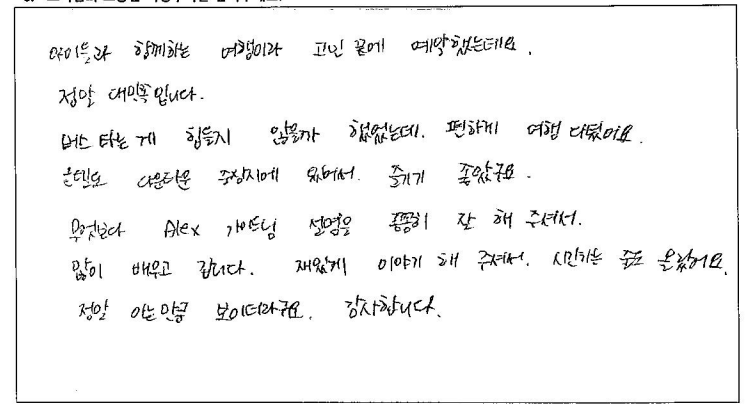 아이들과 함께하는 여행이라 고민 끝에 예약했는데요.
정말 대만족입니다.
버스 타는 게 힘들지 않을까 했었는데. 편하게 여행 다녔어요.
호텔도 다운타운 중심지에 있어서. 즐기기 좋았구요.
무엇보다 Alex 가이드님 설명은 꼼꼼히 잘 해 주셔서.
많이 배우고 갑니다. 재밌게 이야기 해 주셔서. 시간가는 줄도 몰랐어요.
정말 아는만큼 보이더라구요. 감사합니다.